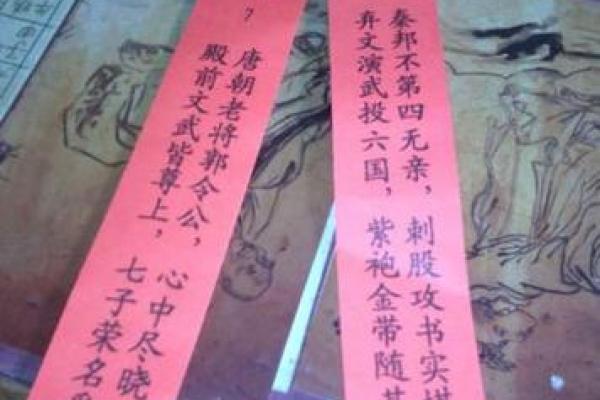 秦邦不第四无亲，刺股攻书实
弃文演武投六国，紫袍金带随
?
唐朝老将郭令公，心中尽晓
殿前文武皆尊上，七子荣名